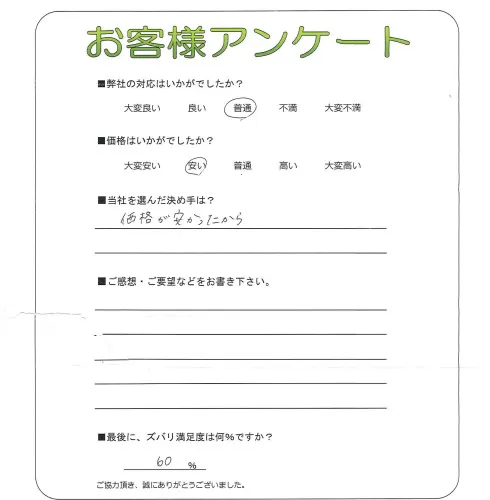 お客様アンケート
■弊社の対応はいかがでしたか？
大変良い 良い 普通 不満 大変不満
■価格はいかがでしたか？
大変安い 安い 普通 高い 大変高い
■当社を選んだ決め手は？
価格が安かったから
■ご感想・ご要望などをお書き下さい。
■最後に、ズバリ満足度は何％ですか？
60 %
ご協力頂き、誠にありがとうございました。